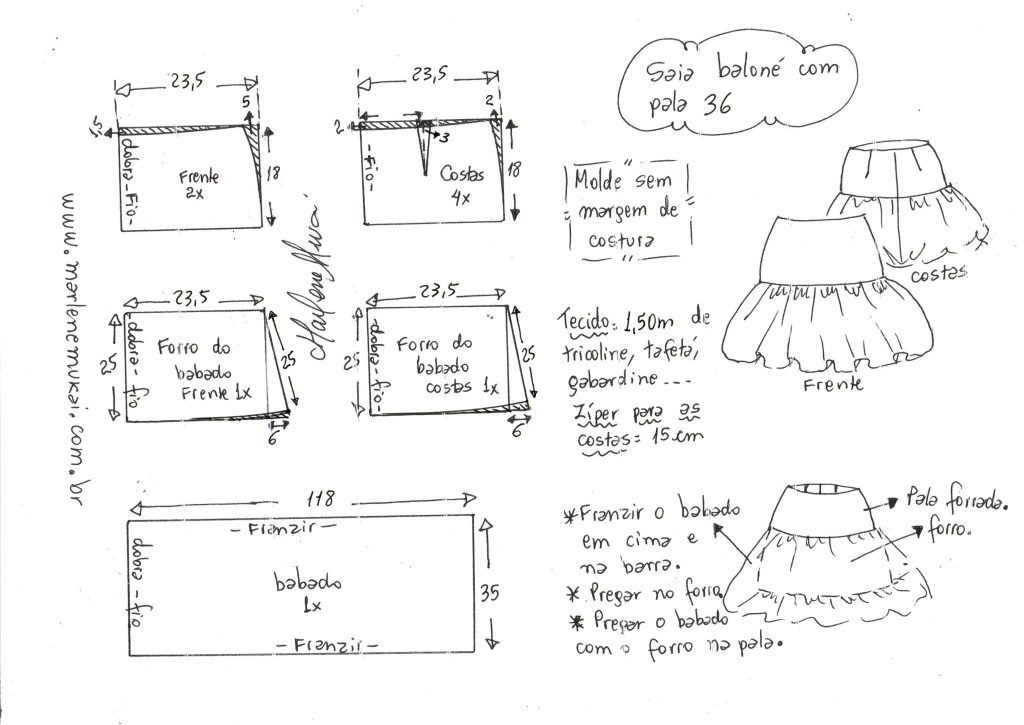 Saia baloné com
pala 36
23,5
5
1,5
18
dobra-Fio-
Frente
2x
23,5
2
2
3
18
-Fio-
Costas
4x
Molde sem
margem de
costura
costas
Frente
www.marlenemukai.com.br
23,5
25
25
6
dobra-fio
Forro do
babado
Frente 1x
23,5
25
25
6
-dobra-fio-
Forro do
babado
costas 1x
Tecido= 1,50m de
tricoline, tafetá,
gabardine...
Zíper para as
costas= 15cm
118
35
- Franzir -
dobra-fio
babado
1x
- Franzir -
*Franzir o babado
em cima e
na barra.
* Pregar no forro.
* Pregar o babado
com o forro na pala.
Pala forrada.
forro.